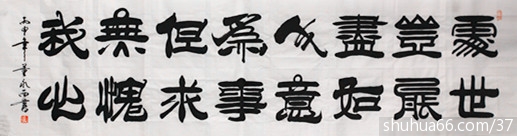 處世
豈能
盡如
人意
爲事
但求
無愧
我心
丙申年
shuhua66.com/37